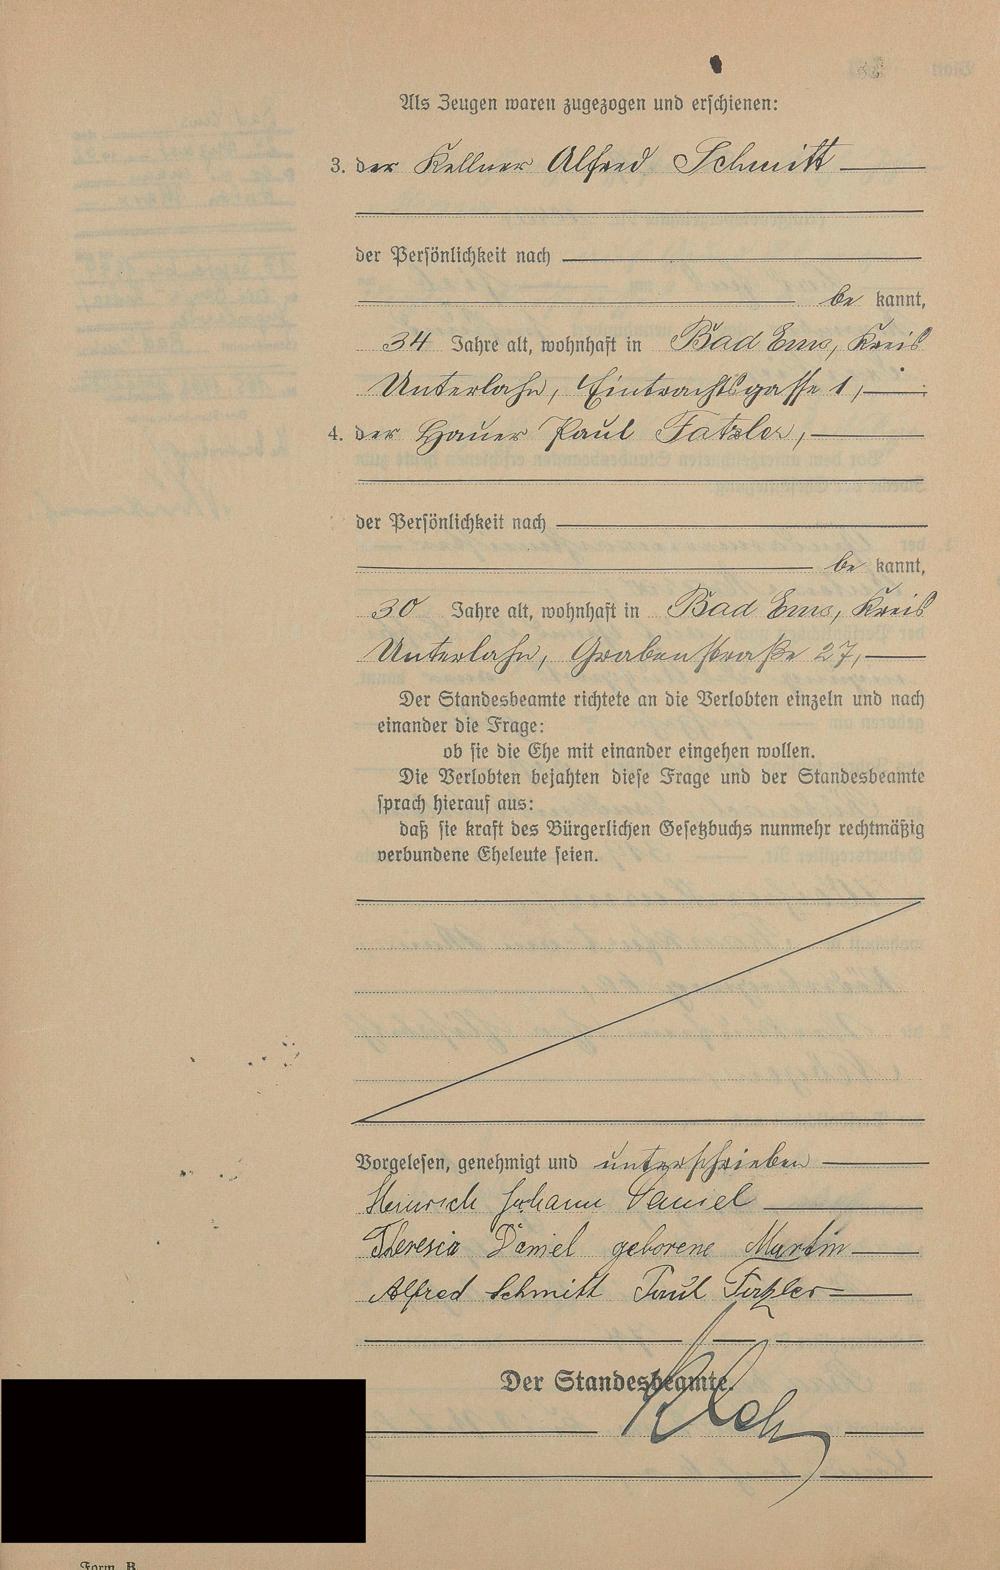 Als Zeugen waren zugezogen und erschienen:
3. der Kellner Alfred Schmitt
der Persönlichkeit nach
be kannt,
34 Jahre alt, wohnhaft in Bad Ems, Kreis
Unterlahn, Eintrachtsgasse 1,
4. der Hauer Paul Fatzler,
der Persönlichkeit nach
be kannt,
30 Jahre alt, wohnhaft in Bad Ems, Kreis
Unterlahn, Grabenstraße 27,
Der Standesbeamte richtete an die Verlobten einzeln und nach
einander die Frage:
ob sie die Ehe mit einander eingehen wollen.
Die Verlobten bejahten diese Frage und der Standesbeamte
sprach hierauf aus:
daß sie kraft des Bürgerlichen Gesetzbuchs nunmehr rechtmäßig
verbundene Eheleute seien.
Vorgelesen, genehmigt und unterschrieben
Heinrich Johann Daniel
Theresia Daniel geborene Martin
Alfred Schmitt Paul Fatzler
Der Standesbeamte.
Form. B.